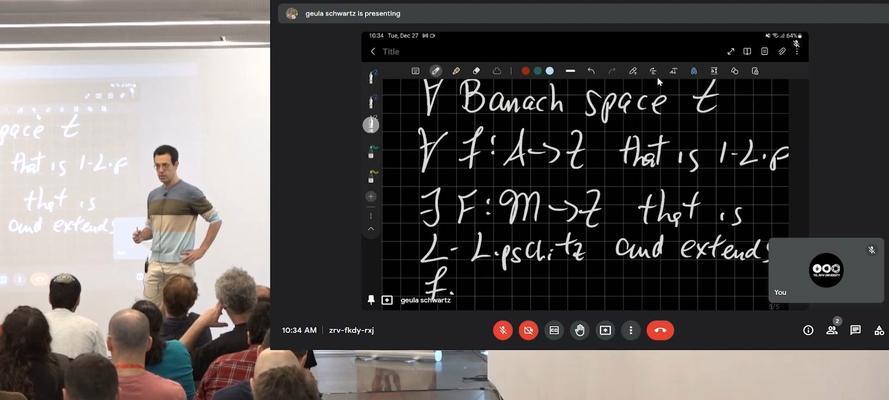 geula schwartz is presenting
10:34 Tue, Dec 27
64%
Title
∀ Banach space Z
∀ f: A → Z that is 1-Lip
∃ F: M → Z that is
L-Lipschitz and extends
f.
geula schwartz
You
2
10:34 AM | zrv-fkdy-rxj
pace Z
that is 1-Lip
that is
and extends